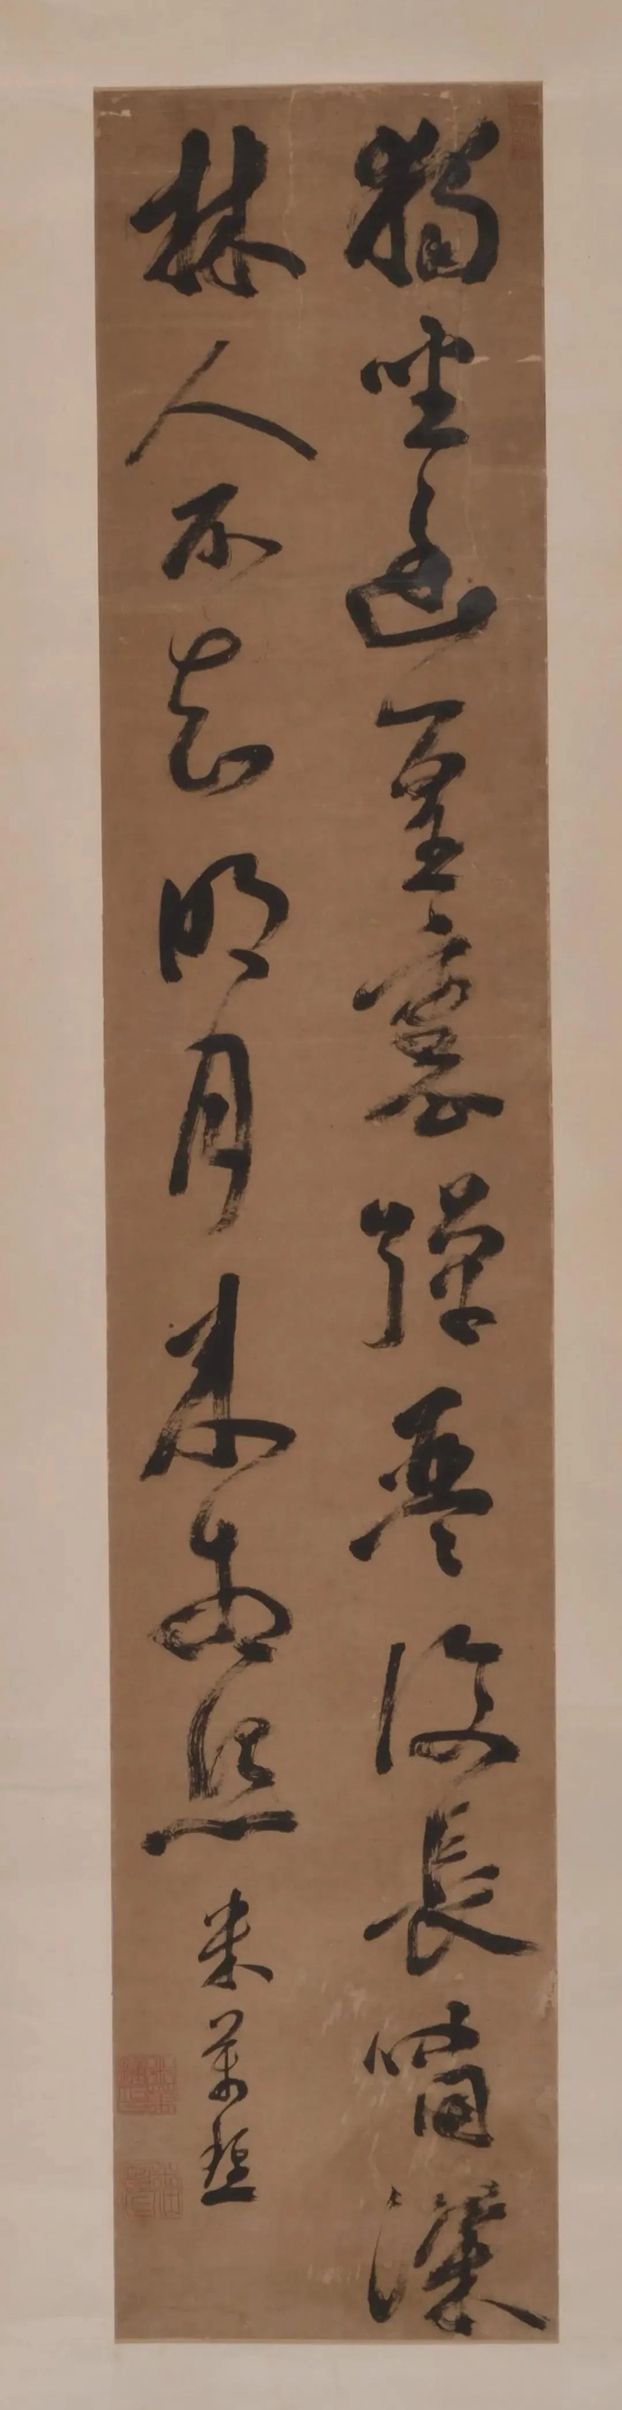 獨坐幽篁裏彈琴復長嘯深
林人不知明月來相照
米萬鍾